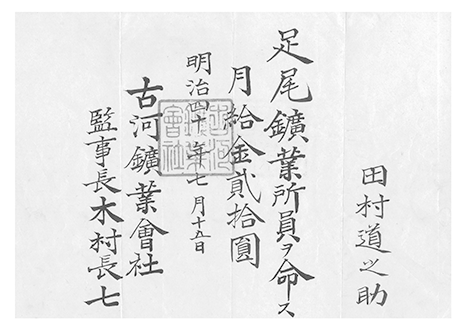 田村道之助
足尾鑛業所員ヲ命ス
月給金貳拾圓
明治四十年七月十五日
古河鑛業會社
監事長木村長七